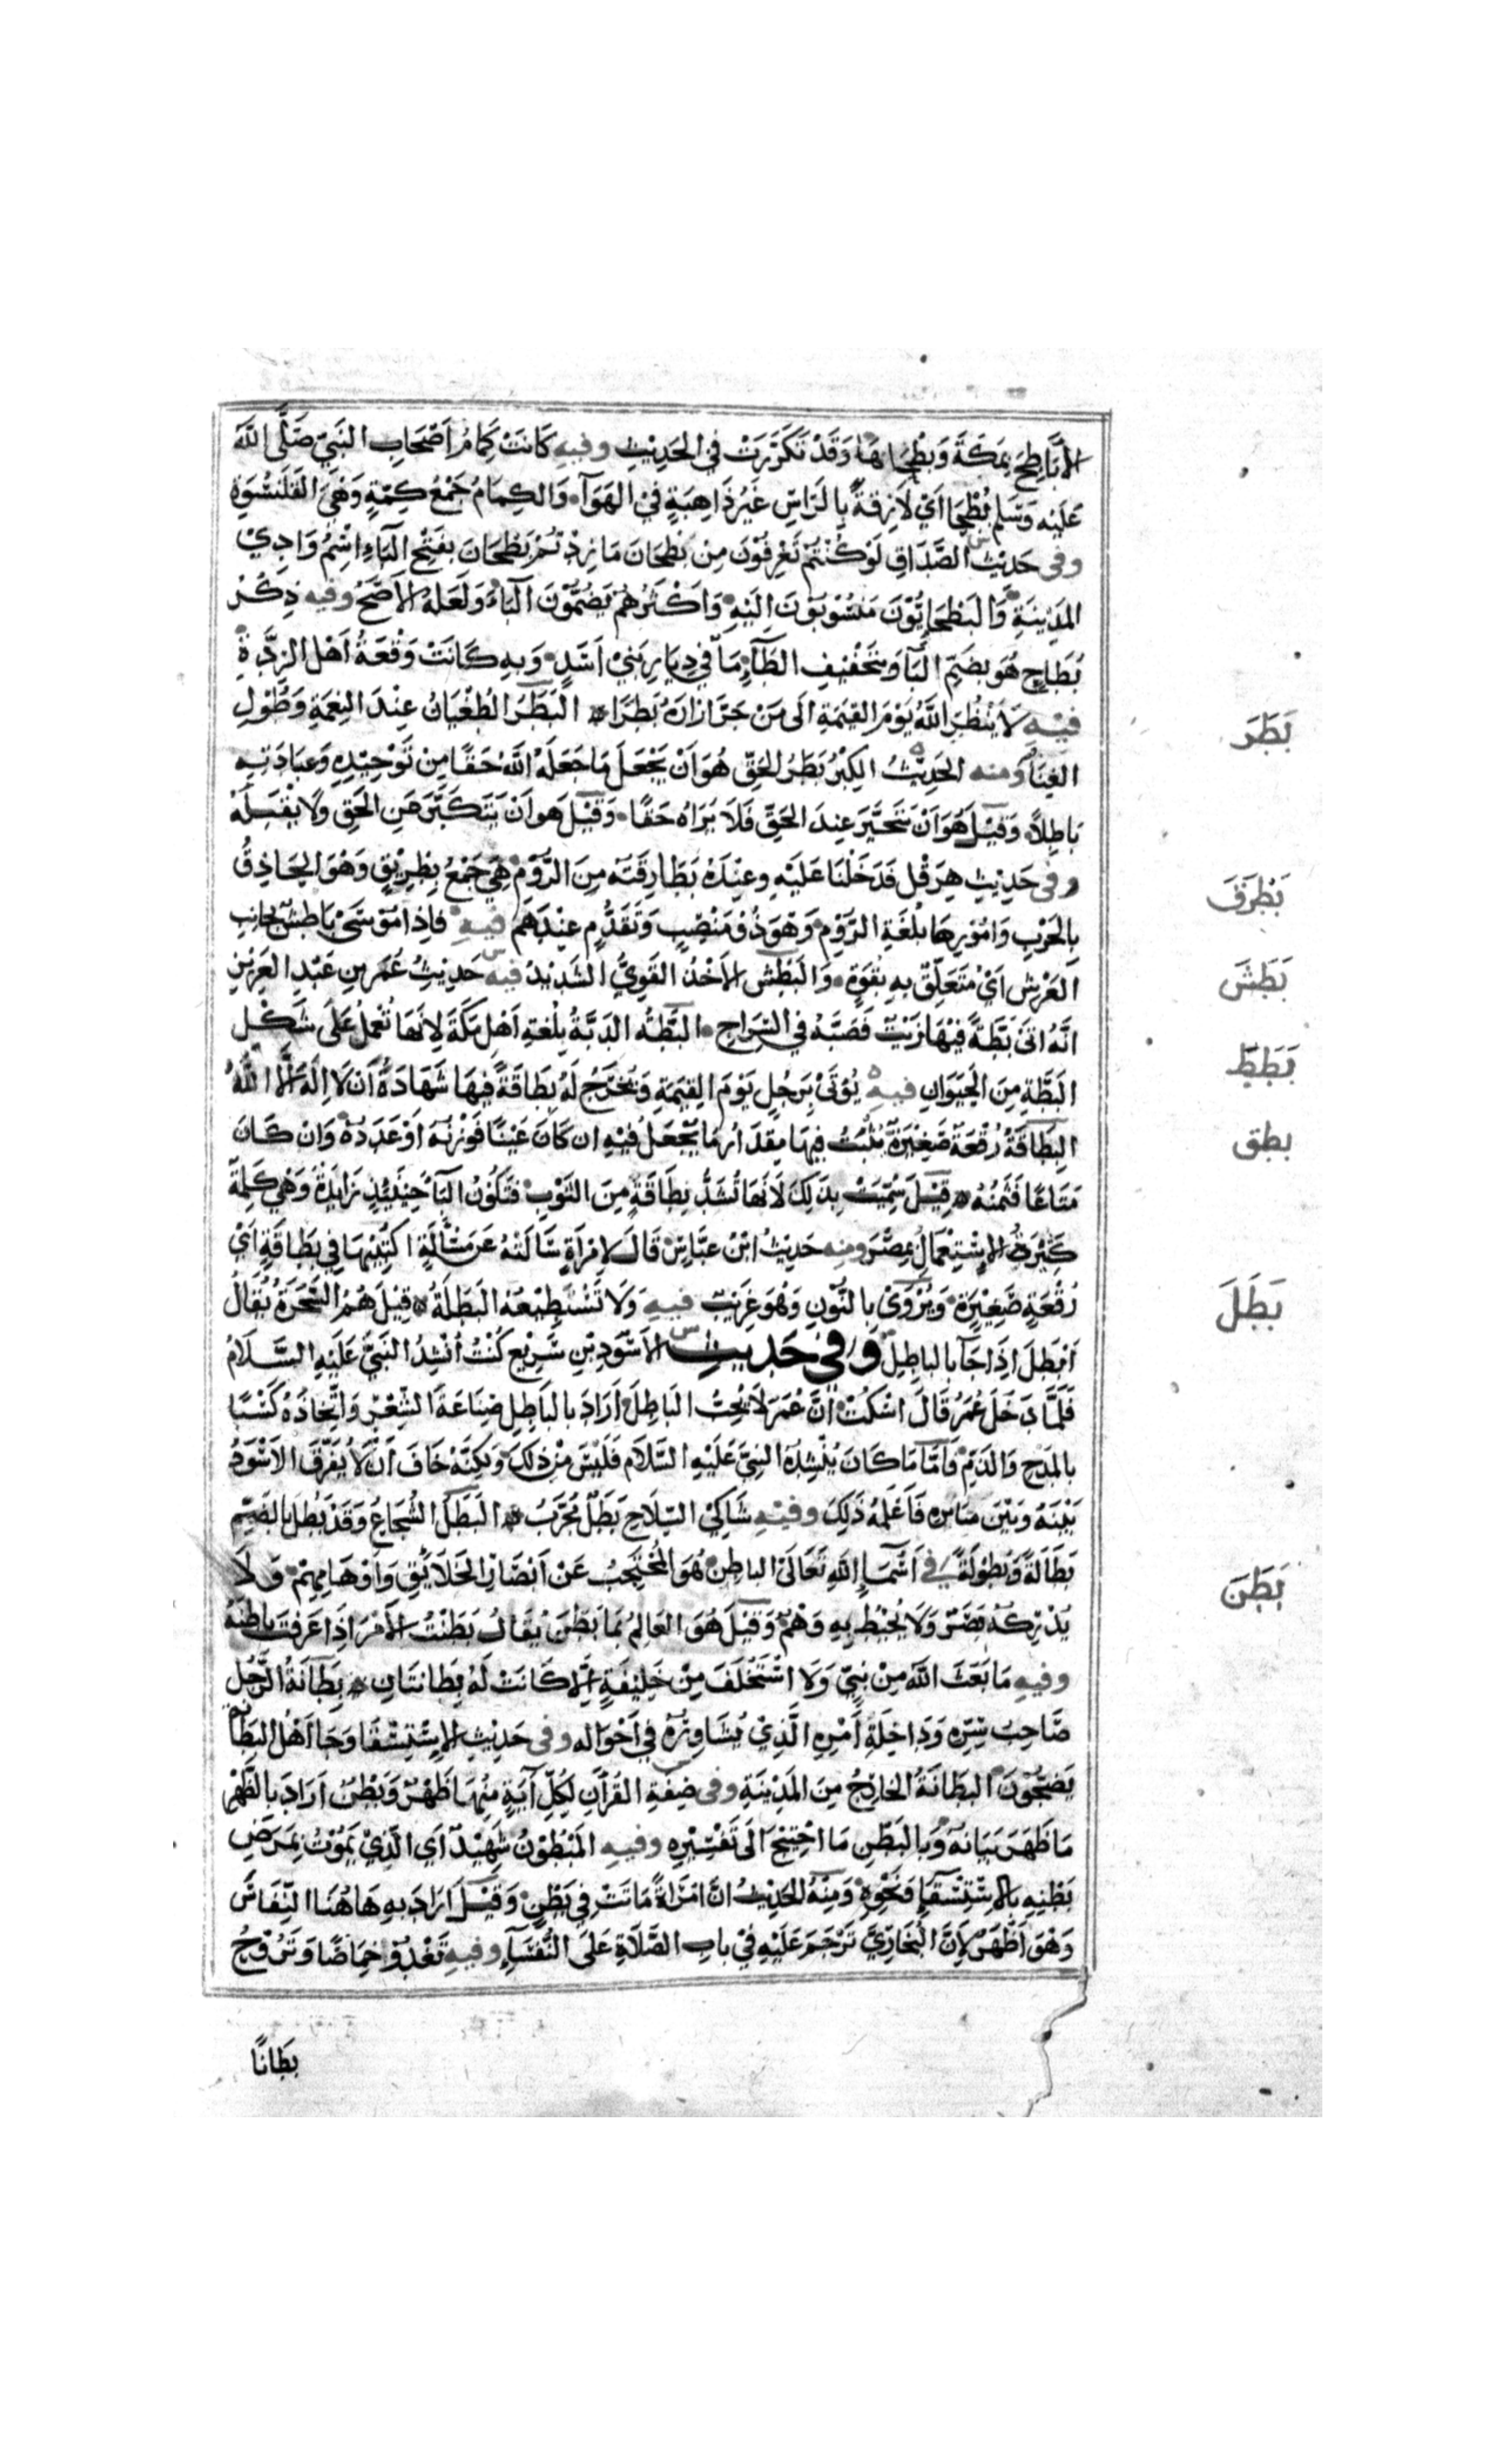 الأَبَاطِحَ بِمَكَّةَ وَبُطْحَا لهَا وَقَدْ تَكَرَّرَتْ فِي الحَدِيْثِ وفيهِ كَانَتْ كِمَامُ اَصْحَابِ النَبِيّ صَلَّى اللَّهُ
عَلَيْه وَسَلم بُطْحًا اَيْ لَازِقَةً بِالرَاسِ غَيْرُ ذَاهِبَةٍ فِيْ الهَوَآءِ وَالكِمَامُ جَمْعُ كِمَّةٍ وَهِيَ القَلَنسُوَة
وفى حَدِيْث الصَّدَاقِ لَوْ كُنْتُمْ تَغْرِفُوْنَ مِنْ بَطحَانَ مَا زِدْتُمْ بَطحَانَ بفَتْحِ البَآءِ اسْمُ وَادِيْ
المَدِيْنَةِ وَالبَطحَانِيُّوْنَ مَنْسُوْبُوْنَ اِلَيْهِ وَاَكْثَرُهُمْ يَضُمُّوْنَ البَآءَ وَلَعَلهُ الأصَحُّ وفيه ذِكْرُ
بُطَاحٍ هُوَ بِضَمِّ البَآ وَتَخْفِيْفِ الطَآءِ مَآ فِي دِيَارِ بَنِيْ اَسَدٍ وَبِهِ كَانَتْ وَقْعَةُ اَهْلِ الرِدَّةِ
فيهِ لَا يَنْظُرُ اللَّهُ يَوْمَ القِيمَةِ اِلَى مَنْ جَرَّ اِزَارَهُ بَطَرًا البَطَرُ الطُغْيَانُ عِنْدَ النِعْمَةِ وَطُوْلِ
الغِنَا وَمنه الحَدِيْثُ الكِبْرُ بَطَرُ الحَقِّ هُوَ اَنْ يَجْعَلَ مَا جَعَلَهُ اللهُ حَقًا مِنْ تَوْحِيْدِهِ وَعِبَادَتِهِ
بَاطِلاً وَقِيْلَ هُوَ اَنْ يَتَحَيَّرَ عِنْدَ الحَقِّ فَلَا يَرَاهُ حَقًا وَقِيْلَ هو اَنْ يَتَكَبَّرَ عَنِ الحَقِ ولَا يَقْبَلَهُ
وفى حَدِيْثِ هِرَقْل فَدَخَلْنَا عَلَيْهِ وعِنْدَهُ بَطَارِقَتُه مِنَ الرُّوْمِ هِيَ جَمْعُ بِطْرِيْقٍ وَهُوَ الحَاذِقُ
بِالحَرْبِ وَاُمُوْرِهَا بِلُغَةِ الرُّوْمِ وَهُوَ ذُوْ مَنْصِبٍ وَتَقَدُّمٍ عِنْدَهُم فيهِ فَاِذَا مُوْسَى بَاطِشٌ بِجَانِبِ
العَرْشِ اَيْ مُتَعَلِّقٌ بِهِ بِقُوَةٍ وَالبَطْشُ الأَخْذُ القَوِيُّ الشَدِيْدُ فيه حَدِيْثُ عُمَرَ بنِ عَبْدِ العَزِيْزِ
اَنَّهُ اَتَى بَطَّةً فِيْهَا زَيْتٌ فَصَبَّهُ فِي السِّرَاجِ البَطَّةُ الدَبَّةُ بِلُغَةِ اَهْلِ مَكَّةَ لِاَنَهَا تُعْمَلُ عَلَى شَكْلِ
البَطَّةِ مِنَ الحَيَوَانِ فيهِ يُؤْتَى بِرَجُلٍ يَوْمَ القِيمَةِ وَتُخْرَجُ لَهُ بِطَاقَةٌ فِيهَا شَهَادَةُ اَنْ لَا اِلَهَ اِلَّا اللَّهُ
البِطَاقَةُ رُقْعَةٌ صَغِيْرَةٌ يُثْبَتُ فِيهَا مِقْدَارُ مَا يُجْعَلُ فِيْهِ اِن كَانَ عَيْنًا فَوَزْنُهَ اَوْ عَدَدُهُ وَاِنْ كَانَ
مَتَاعًا فَثَمَنُهُ قِيْلَ سُمِّيَتْ بِذَلِكَ لِاَنَهَا تُشَدُّ بِطَاقَةٍ مِنَ الثَوْبِ فَتَكُوْنُ البَآءُ حِيْنَئِذٍ زَايِدَةً وَهِيَ كَلِمَةٌ
كَثِيْرَةُ الإِسْتِعْمَالِ بِمِصْرَ ومنه حَدِيْثُ ابْنِ عَبَّاسٍ قَالَ لِامْرَاَةٍ سَاَلَتْهُ عَنْ مَسْألَةٍ اكْتُبِيْهَا فِي بِطَاقَةٍ اَيْ
رُقْعَةٍ صَغِيْرَةٍ وَيُرْوَى بِالنُّوْنِ وَهُوَ غَرِيْبٌ فيهِ وَلَا تَسْتَطِيْعُهَ البَطَلَةُ قِيْلَ هُمُ السَّحَرَةُ يُقَالُ
اَبْطَلَ اِذَا جَآءَ بِالباطِلِ وفى حَديثِ الأَسْوَدِ بْنِ سَرِيْعٍ كُنْتُ اُنْشِدُ النَبِيَّ عَلَيْهِ السَّلَامُ
فَلَمَّا دَخَلَ عُمَرُ قَالَ اسْكُتْ اِنَّ عُمَرَ لَا يُحِبُّ البَاطِلَ اَرَادَ بِالبَاطِلِ صِنَاعَةَ الشِّعْرِ وَاتِّخَاذَهُ كَسْبًا
بِالمَدْحِ وَالذَمِّ وَاَمَّا مَا كَانَ يُنْشِدُهُ النَبِيَّ عَلَيْهِ السَّلَامُ فَلَيْسَ مِنْ ذَلِكَ وَلَكِنَّهُ خَافَ اَنْ لَا يُفَرِّقَ الأَسْوَدُ
بَيْنَهُ وَبَيْنَ سَايِرِهِ فَاَعْلَمَهُ ذَلِكَ وفيهِ شَاكِيْ السِّلَاحِ بَطَلٌ مُجَرَّبُ البَطَلُ الشُجَاعُ وَقَدْ بَطُلَ بِالضَمِّ
بَطَالَةً وَبُطُوْلَةً فى اَسْمَآءِ اللهِ تَعَالَى البَاطِنُ هُوَ المُحْتَجِبُ عَنْ اَبْصَارِ الخَلَائِقِ وَاَوْهَامِهِمْ وَلَا
يُدْرِكُهُ بَصَرٌ وَلَا يُحِيْطُ بِهِ وَهْمٌ وَقِيْلَ هُوَ العَالِمُ بِمَا بَطَنَ يُقَالُ بَطَنْتُ الأَمْرَ اِذَا عَرَفْتَ بَاطِنَهُ
وفيهِ مَا بَعَثَ اللهُ مِنْ نَبِيٍّ وَلَا اسْتَخْلَفَ مِنْ خَلِيْفَةٍ اِلَّا كَانَتْ لَهُ بِطَانَتَانِ بِطَانَةُ الرَّجُلِ
صَاحِبُ سِرِّهِ وَدَاخِلَةِ اَمْرِهِ الَّذِيْ يُشَاوِرُهُ فِي اَحْوَالِه وفى حَدِيْثِ الإِسْتِسْقَا وَجَا اَهْلُ البِطَانَةِ
يَضِجُّوْنَ البِطَانَةُ الخَارِجُ مِنَ المَدِيْنَةِ وفى صِفَةِ القُرْآنِ لِكُلِّ آيَةٍ مِنْهَا ظَهْرٌ وَبَطْنٌ اَرَادَ بِالظَّهْرِ
مَا ظَهَرَ بَيَانُهُ وَبِالبَطْنِ مَا احْتِيْجَ اِلَى تَفْسِيْرِهِ وفيهِ المَبْطُوْنُ شَهِيْدٌ اَي الَّذِيْ يَمُوْتُ بِمَرَضِ
بَطْنِهِ بِالإِسْتِسْقَآءِ وَنَحْوِهِ وَمِنْهُ الحَدِيْثُ اَنَّ امْرَاَةً مَاتَتْ فِي بَطْنٍ وَقِيْلَ اَرَادَ بِهِ هَاهُنَا النِّفَاسَ
وَهُوَ اَظْهَرُ لِاَنَّ البُخَارِيَّ تَرْجَمَ عَلَيْهِ فِيْ بَابِ الصَّلَاةِ عَلَى النُّفَسَآءِ وفيهِ تَغْدُوْ خِمَاصًا وَتَرُوْحُ
بِطَانًا
بَطَرَ
بَطْرَقَ
بَطَشَ
بَطَطَ
بطق
بَطَلَ
بَطَنَ